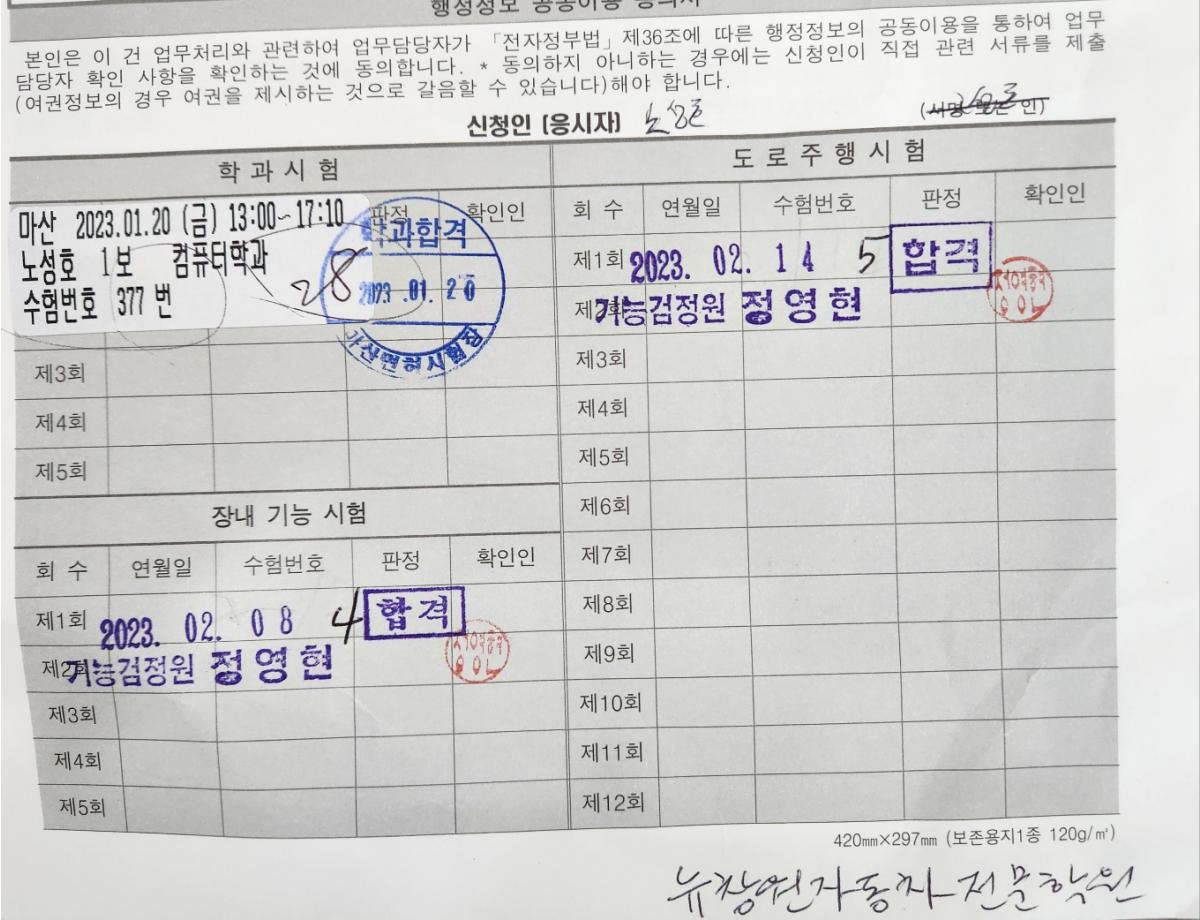 행정정보 공동이용 동의서
본인은 이 건 업무처리와 관련하여 업무담당자가 「전자정부법」 제36조에 따른 행정정보의 공동이용을 통하여 업무
담당자 확인 사항을 확인하는 것에 동의합니다. * 동의하지 아니하는 경우에는 신청인이 직접 관련 서류를 제출
(여권정보의 경우 여권을 제시하는 것으로 갈음할 수 있습니다)해야 합니다.
신청인 (응시자) 노성호 (서명 또는 인)
학 과 시 험
판정 확인인
마산 2023.01.20 (금) 13:00~17:10
노성호 1보 컴퓨터학과
수험번호 377 번
28
학과합격
2023.01.20
마산면허시험장
제3회
제4회
제5회
장내 기능 시험
회 수 연월일 수험번호 판정 확인인
제1회 2023. 02. 08 4 합격
제2회 기능검정원 정영현
제3회
제4회
제5회
도 로 주 행 시 험
회 수 연월일 수험번호 판정 확인인
제1회 2023. 02. 14 5 합격
기능검정원 정영현
제3회
제4회
제5회
제6회
제7회
제8회
제9회
제10회
제11회
제12회
420㎜×297㎜ (보존용지1종 120g/㎡)
뉴창원자동차전문학원